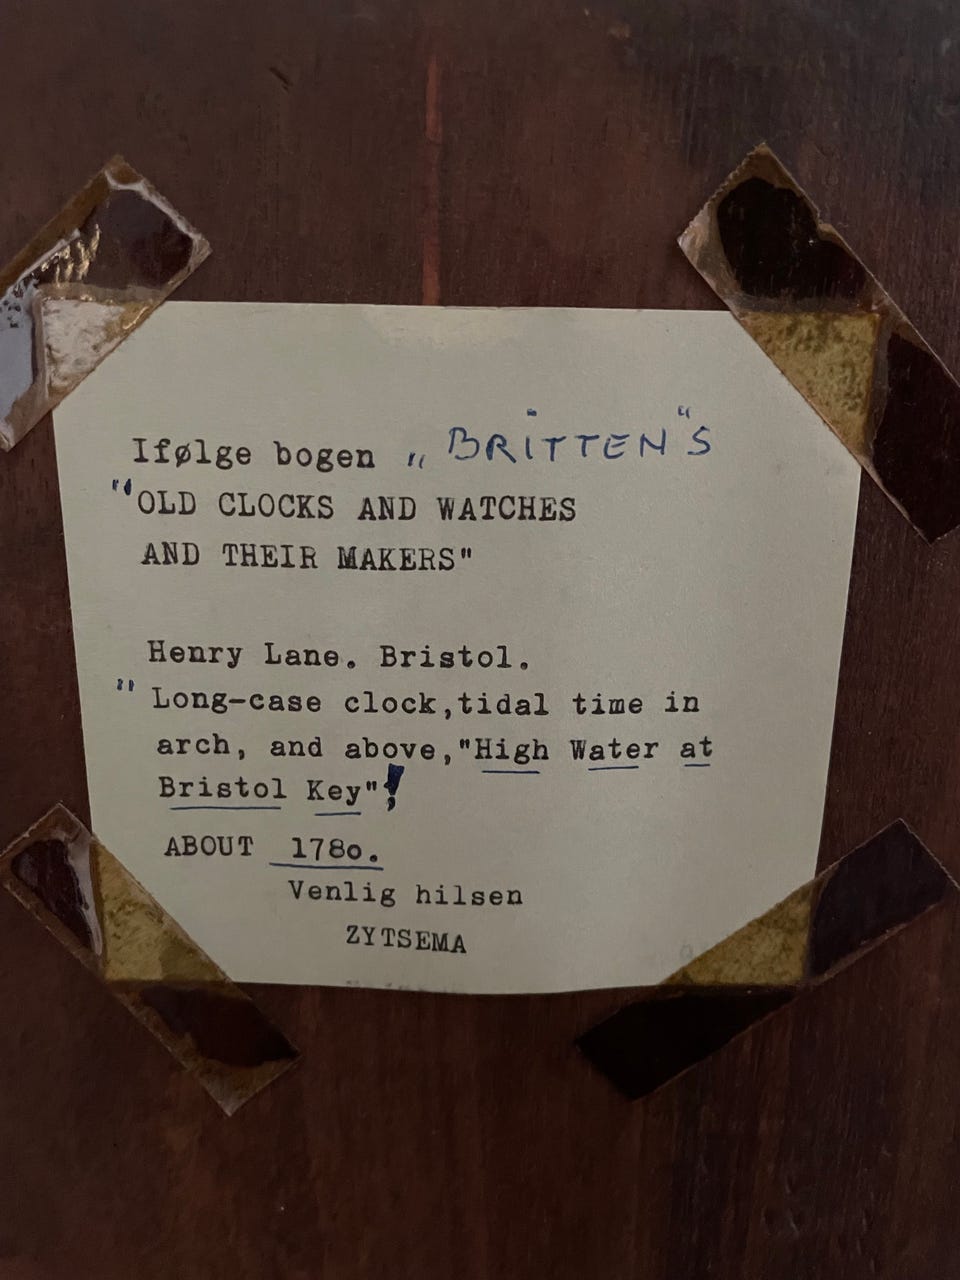 Ifølge bogen „BRITTEN"S
"OLD CLOCKS AND WATCHES
AND THEIR MAKERS"
Henry Lane. Bristol.
" Long-case clock,tidal time in
arch, and above,"High Water at
Bristol Key"!
ABOUT 178o.
Venlig hilsen
ZYTSEMA